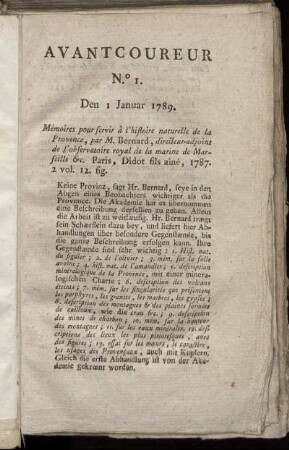 AVANTCOUREUR
N.º 1.
Den 1 Januar 1789.
Mémoires pour servir à l'histoire naturelle de la
Provence, par M. Bernard, directeur-adjoint
de l'observatoire royal de la marine de Mar-
seille &c. Paris, Didot fils aîné, 1787.
2 vol. 12. fig.
Keine Provinz, sagt Hr. Bernard, seye in den
Augen eines Beobachters wichtiger als die
Provence. Die Akademie hat es übernommen
eine Beschreibung derselben zu geben. Allein
die Arbeit ist zu weitläufig. Hr. Bernard trägt
sein Schärflein dazu bey, und liefert hier Ab-
handlungen über besondere Gegenstände, bis
die ganze Beschreibung erfolgen kann. Ihre
Gegenstände sind sehr wichtig: 1. Hist. nat.
du figuier; 2. de l'olivier; 3. mém. sur la folle
avoine; 4. hist. nat. de l'amandier; 5. description
minéralogique de la Provence, mit einer minera-
logischen Charte; 6. description des volcans
éteints; 7. mém. sur les singularités que présentent
les porphyres, les granits, les marbres, les gypses;
8. description des montagnes & des plaines formées
de cailloux, wie die crau &c.; 9. description
des mines de charbon; 10. mém. sur la hauteur
des montagnes; 11. sur les eaux minérales. 12. des-
criptions des lieux les plus pittoresques, avec
des figures; 13. essai sur les mœurs, le caractère,
les usages des Provençaux, auch mit Kupfern.
Gleich die erste Abhandlung ist von der Aka-
demie gekrönt worden.